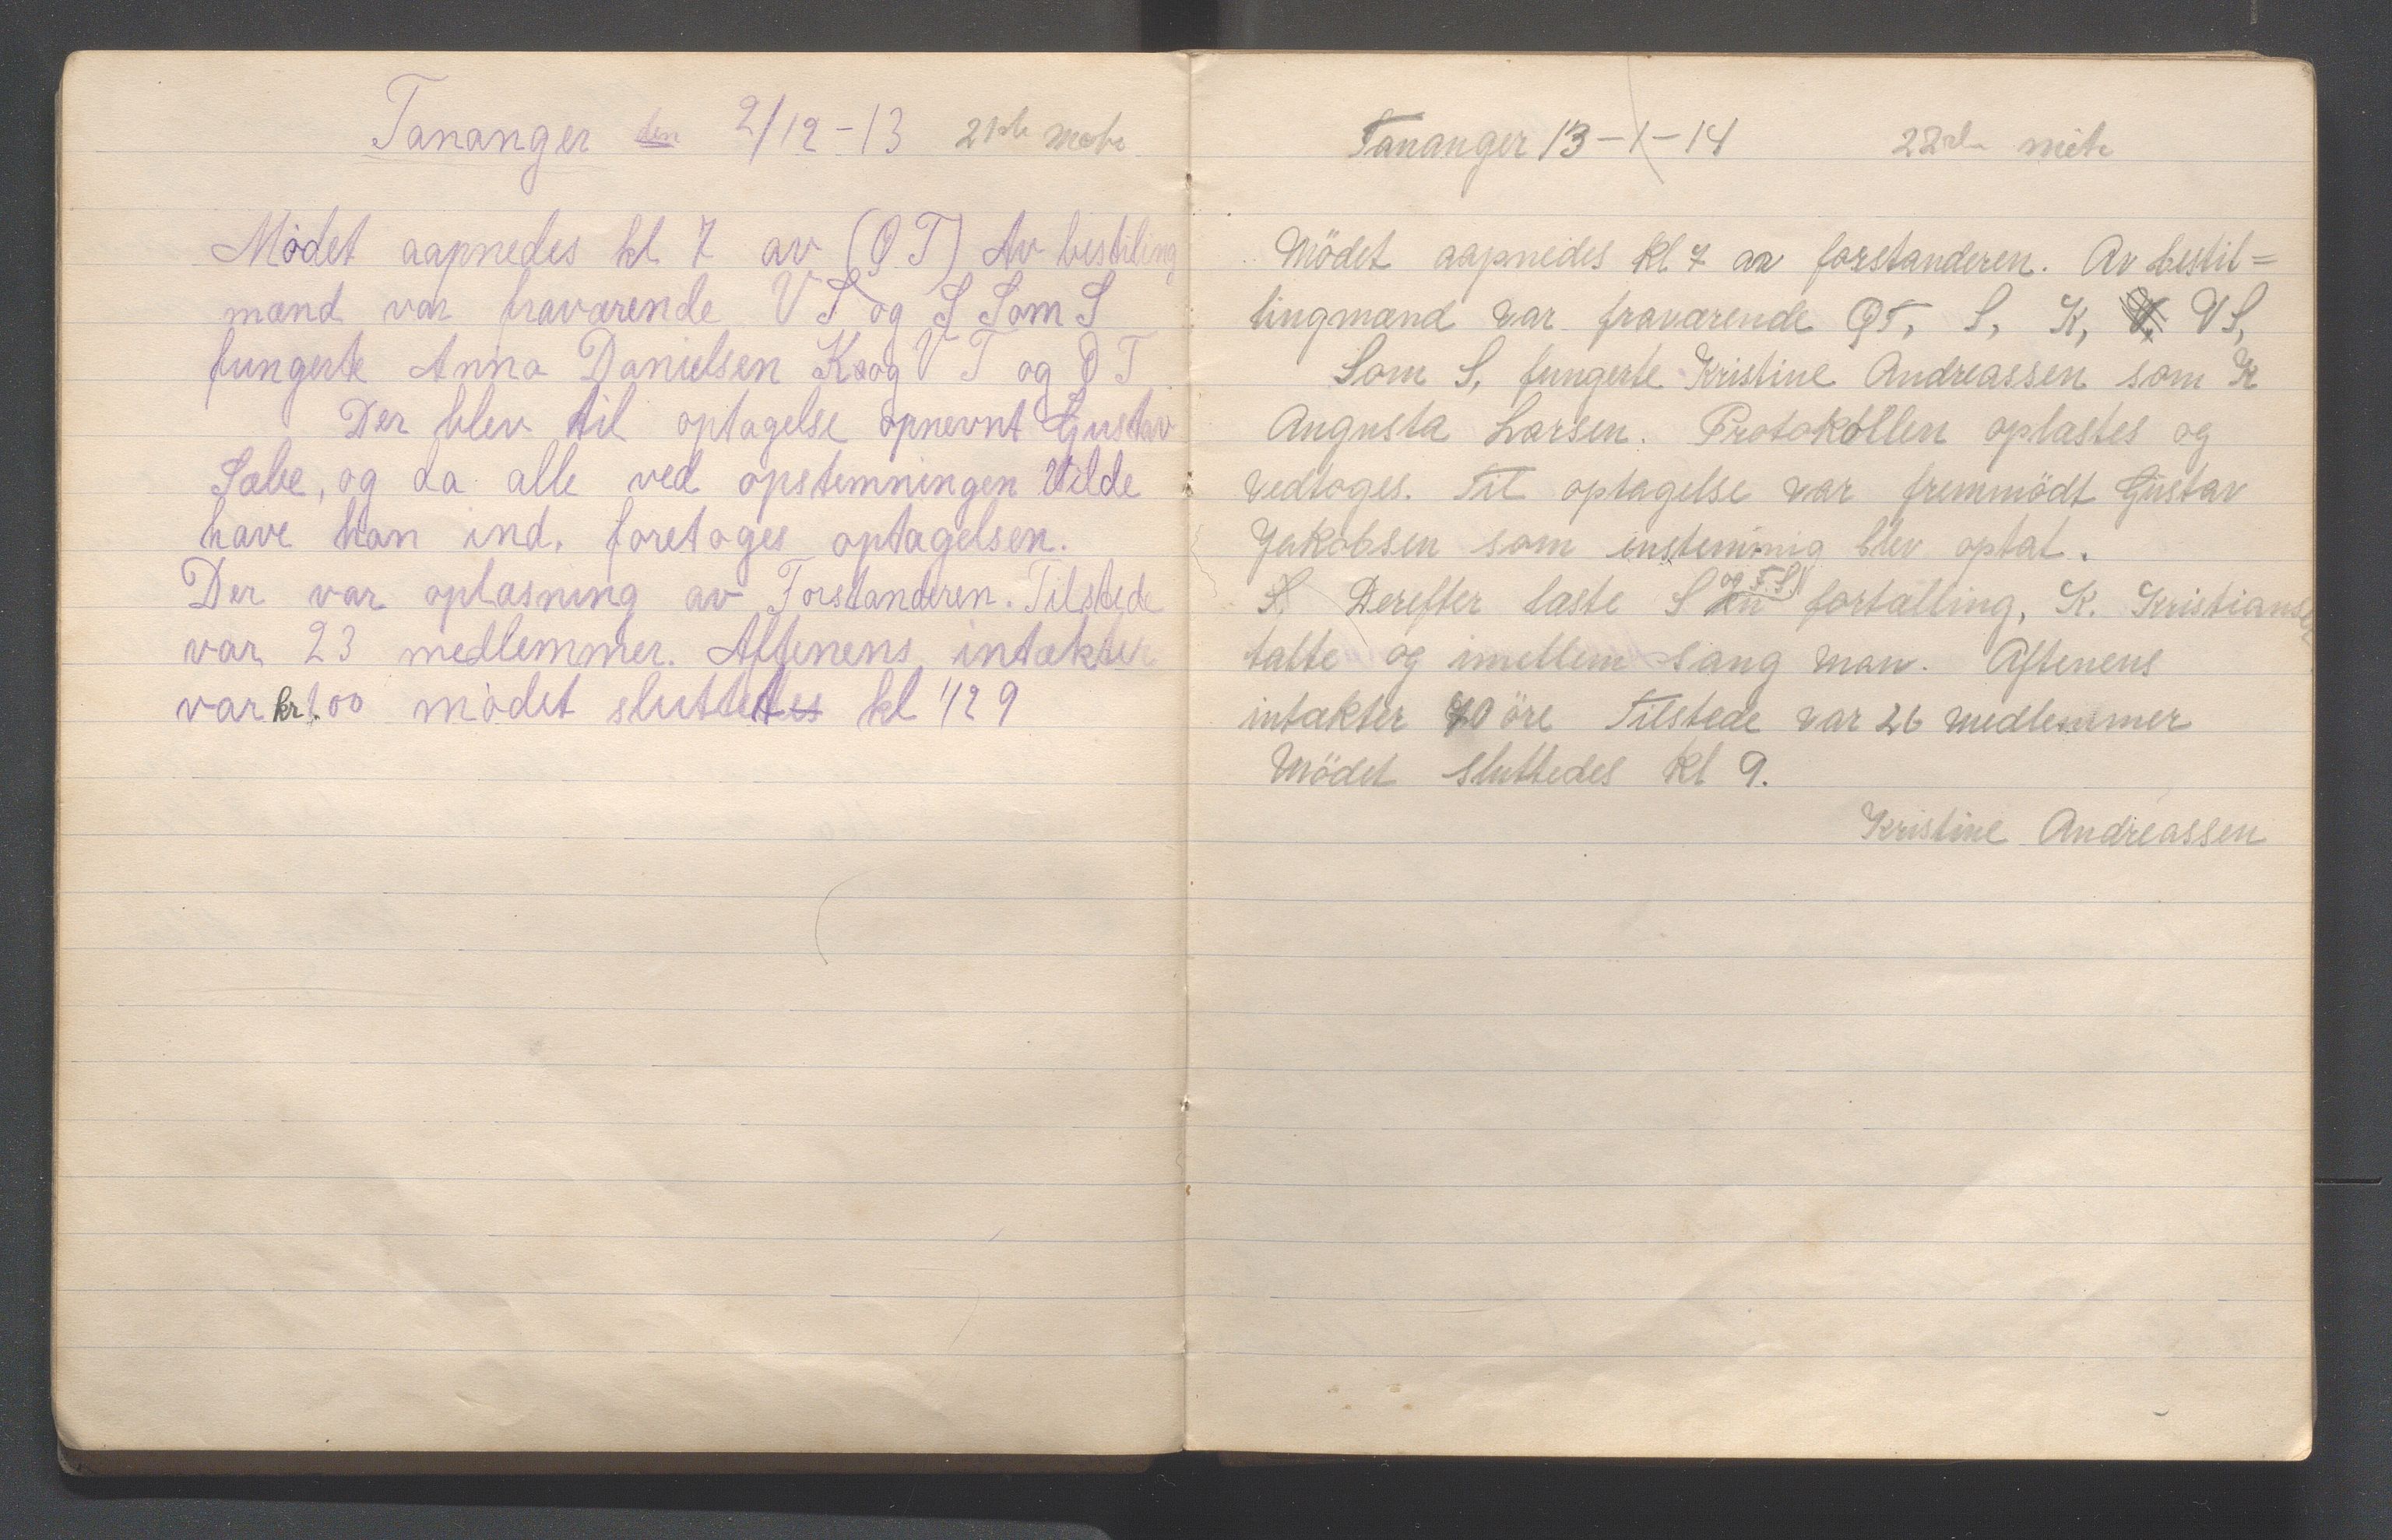 Tananger den 2/12-13 21de møte
Mödet aapnedes kl 7 av (Q T) Av bestiling
mænd var fraværende V S og S Som S
fungerte Anna Danielsen K og V T og Q T
Der blev til optagelse opnevnt Gustav
Sæbe, og da alle ved opstemningen vilde
have han ind. foretoges optagelsen.
Der var oplæsning av Forstanderen. Tilstede
var 23 medlemmer. Aftenens intækter
var kr. 1.00 mödet sluttettes kl 1/2 9
Tananger 13-1-14 22de möte
Mödet aapnedes kl 7 av forstanderen. Av bestil=
lingmænd var fraværende QT, S, K, V S,
Som S, fungerte Kristine Andreassen som K
Augusta Larsen. Protokollen oplæstes og
vedtoges. Til optagelse var fremmödt Gustav
Jakobsen som enstemmig blev optat.
og F.S.
S. Derefter læste S en fortælling, K. Kristiansen
talte og imellem sang man. Aftenens
intækter 70 öre Tilstede var 26 medlemmer
Mödet sluttedes kl 9.
Kristine Andreassen